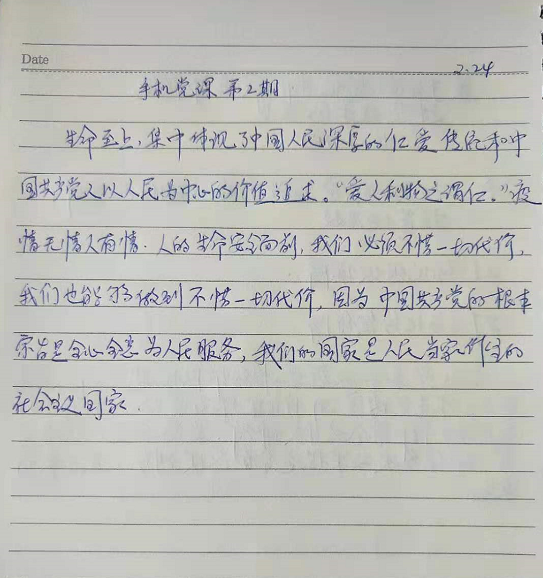 Date
2.24
手机党课 第2期
生命至上,集中体现了中国人民深厚的仁爱传统和中
国共产党人以人民为中心的价值追求。“爱人利物之谓仁。”疫
情无情人有情.人的生命安全面前,我们必须不惜一切代价,
我们也能够做到不惜一切代价,因为中国共产党的根本
宗旨是全心全意为人民服务,我们的国家是人民当家作主的
社会主义国家.